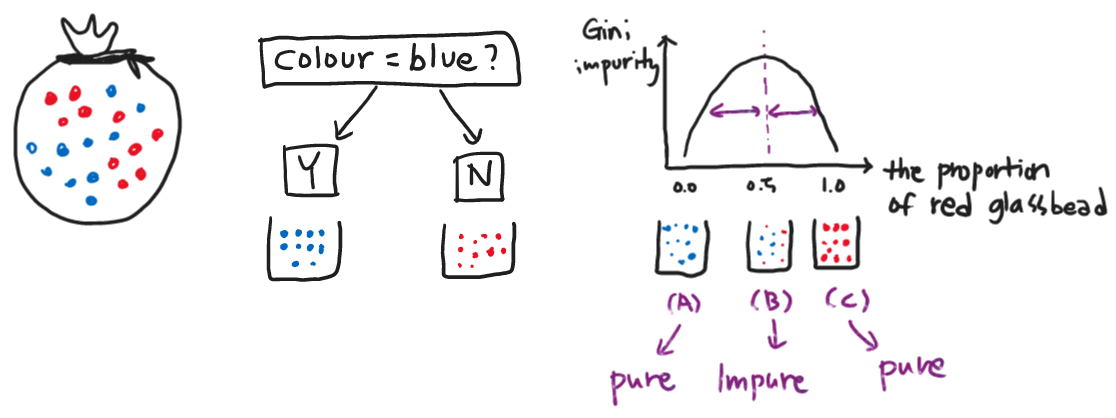 colour = blue ?
Y
N
Gini
impurity
0.0
0.5
1.0
the proportion
of red glassbead
(A)
(B)
(C)
pure
Impure
pure